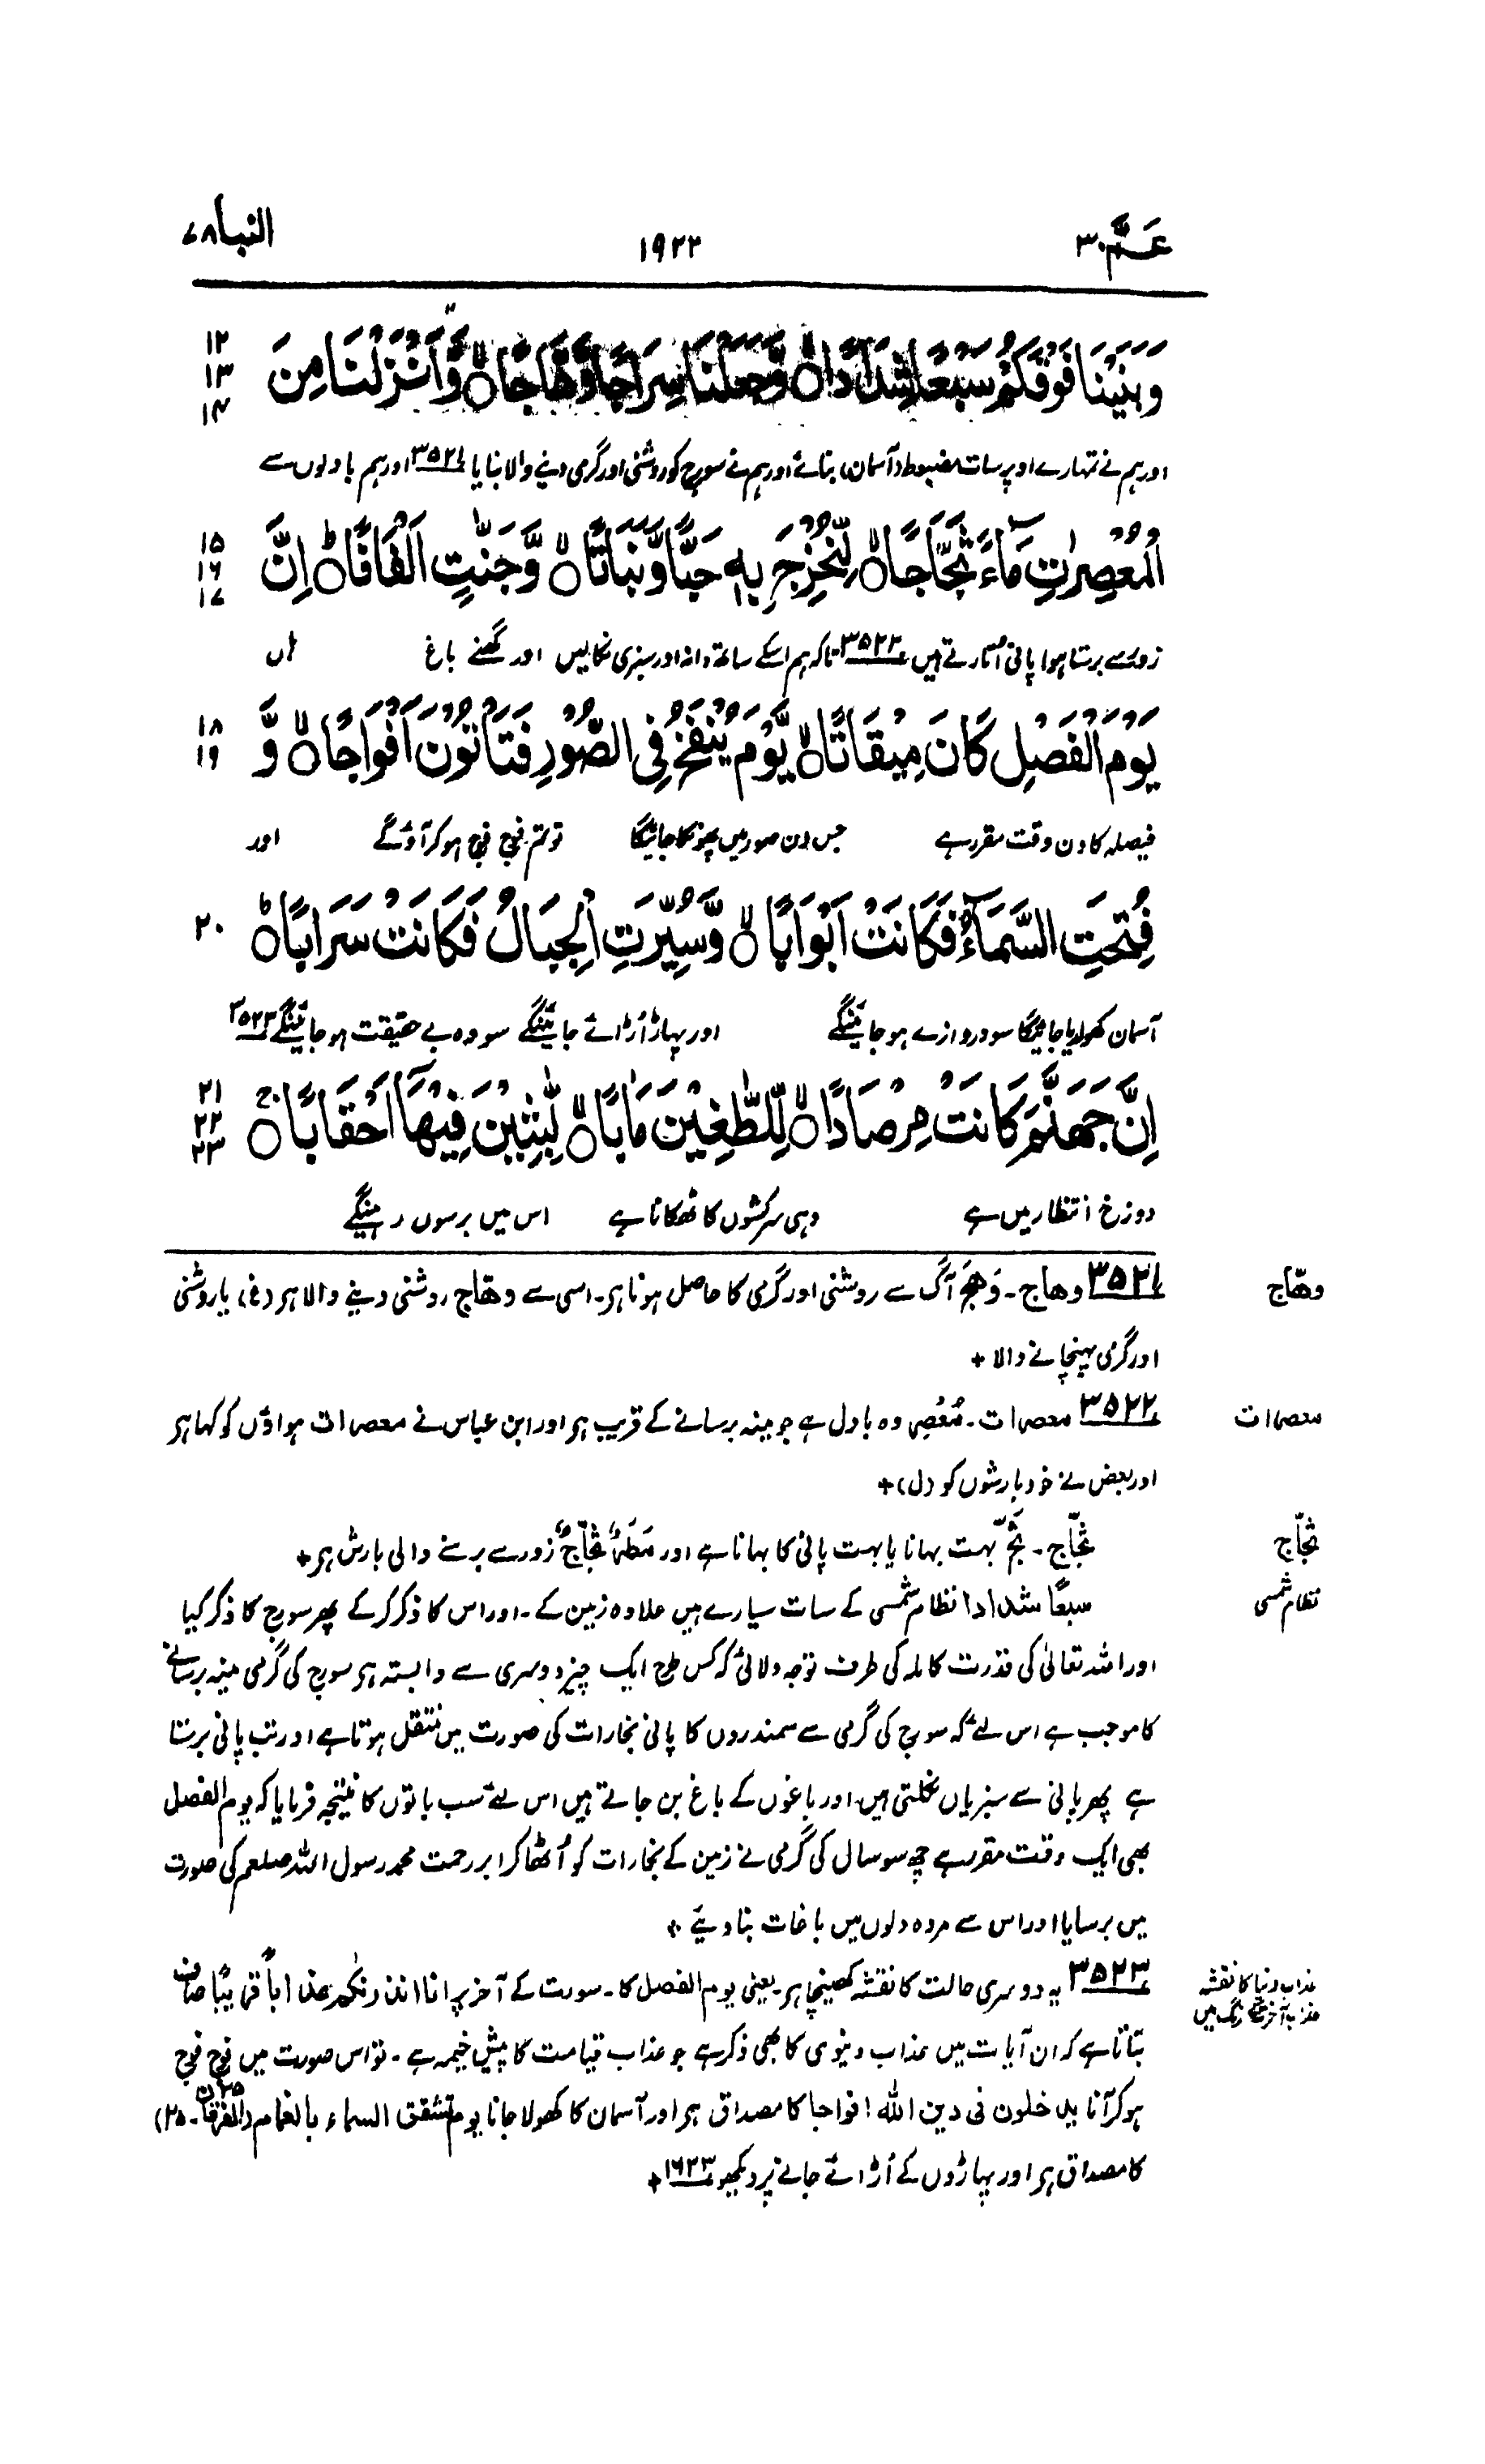 عَمَّ ۳۰ ۱۹۲۲ النبا ۷۸
وَّبَنَيْنَا فَوْقَكُمْ سَبْعًا شِدَادًا ۙ وَّجَعَلْنَا سِرَاجًا وَّهَّاجًا ۙ وَّاَنْزَلْنَا مِنَ ۱۲ ۱۳ ۱۴
اور ہم نے تمہارے اوپر سات مضبوط (آسمان) بنائے اور ہم نے سورج کو روشنی اور گرمی دینے والا بنایا ۳۵۲۱ اور ہم بادلوں سے
الْمُعْصِرٰتِ مَآءً ثَجَّاجًا ۙ لِّنُخْرِجَ بِهٖ حَبًّا وَّنَبَاتًا ۙ وَّجَنّٰتٍ اَلْفَافًا ؕ اِنَّ ۱۵ ۱۶ ۱۷
زور سے برستا ہوا پانی اُتارتے ہیں ۳۵۲۲ تاکہ ہم اسکے ساتھ دانہ اور سبزی نکالیں اور گھنے باغ ہاں
يَوْمَ الْفَصْلِ كَانَ مِيْقَاتًا ۙ يَّوْمَ يُنْفَخُ فِي الصُّوْرِ فَتَاْتُوْنَ اَفْوَاجًا ۙ وَّ ۱۸ ۱۹
فیصلہ کا دن وقت مقرر ہے جس دن صور میں پھونکا جائیگا تو تم فوج فوج ہو کر آؤ گے اور
فُتِحَتِ السَّمَآءُ فَكَانَتْ اَبْوَابًا ۙ وَّسُيِّرَتِ الْجِبَالُ فَكَانَتْ سَرَابًا ؕ ۲۰
آسمان کھولدیا جائیگا سو دروازے ہو جائینگے اور پہاڑ اُڑائے جائینگے سو وہ بے حقیقت ہو جائینگے ۳۵۲۳
اِنَّ جَهَنَّمَ كَانَتْ مِرْصَادًا ۙ لِّلطَّاغِيْنَ مَاٰبًا ۙ لّٰبِثِيْنَ فِيْهَآ اَحْقَابًا ۚ ۲۱ ۲۲ ۲۳
دوزخ انتظار میں ہے وہی سرکشوں کا ٹھکانا ہے اس میں برسوں رہینگے
وھّاج ۳۵۲۱ وھاج۔ وَھَجَ آگ سے روشنی اور گرمی کا حاصل ہونا ہر۔ اسی سے وھّاج روشنی دینے والا ہر (غ) یا روشنی
اور گرمی پہنچانے والا +
معصرات ۳۵۲۲ معصرات۔ مُعْصِر وہ بادل ہے جو مینہ برسانے کے قریب ہر اور ابن عباس نے معصرات ہواؤں کو کہا ہر
اور بعض نے خود بارشوں کو (ل) +
ثجّاج ثجّاج۔ ثجّ بہت بہانا یا بہت پانی کا بہانا ہے اور مَطَرٌ ثجّاجٌ زور سے برسنے والی بارش ہر +
نظام شمسی سبعًا شدادا نظام شمسی کے سات سیارے ہیں علاوہ زمین کے۔ اور اس کا ذکر کر کے پھر سورج کا ذکر کیا
اور اللہ تعالیٰ کی قدرت کاملہ کی طرف توجہ دلائی کہ کس طرح ایک چیز دوسری سے وابستہ ہر سورج کی گرمی مینہ برسانے
کا موجب ہے اس لئے کہ سورج کی گرمی سے سمندروں کا پانی بخارات کی صورت میں منتقل ہوتا ہے اور تب پانی برستا
ہے پھر پانی سے سبزیاں نکلتی ہیں۔ اور باغوں کے باغ بن جاتے ہیں اس لئے سب باتوں کا نتیجہ فرمایا کہ یوم الفصل
بھی ایک وقت مقرر ہے چھ سو سال کی گرمی نے زمین کے بخارات کو اُٹھا کر ابر رحمت محمد رسول اللہ صلعم کی صورت
میں برسایا اور اس سے مردہ دلوں میں باغات بنا دیئے +
عذاب دنیا کا نقشہ عذاب آخرت کے رنگ میں ۳۵۲۳ یہ دوسری حالت کا نقشہ کھینچا ہر۔ یعنی یوم الفصل کا۔ سورت کے آخر پر انا انذرنٰکم عذابا قریبًا صاف
بتاتا ہے کہ ان آیات میں عذاب دنیوی کا بھی ذکر ہے جو عذاب قیامت کا پیش خیمہ ہے۔ تو اس صورت میں فوج فوج
ہو کر آنا یدخلون فی دین اللہ افواجا کا مصداق ہر اور آسمان کا کھولا جانا یوم تشقق السماء بالغمام (الفرقان ۲۵۔ ۲۵)
کا مصداق ہر اور پہاڑوں کے اُڑائے جانے پر دیکھو ۱۶۲۳ +